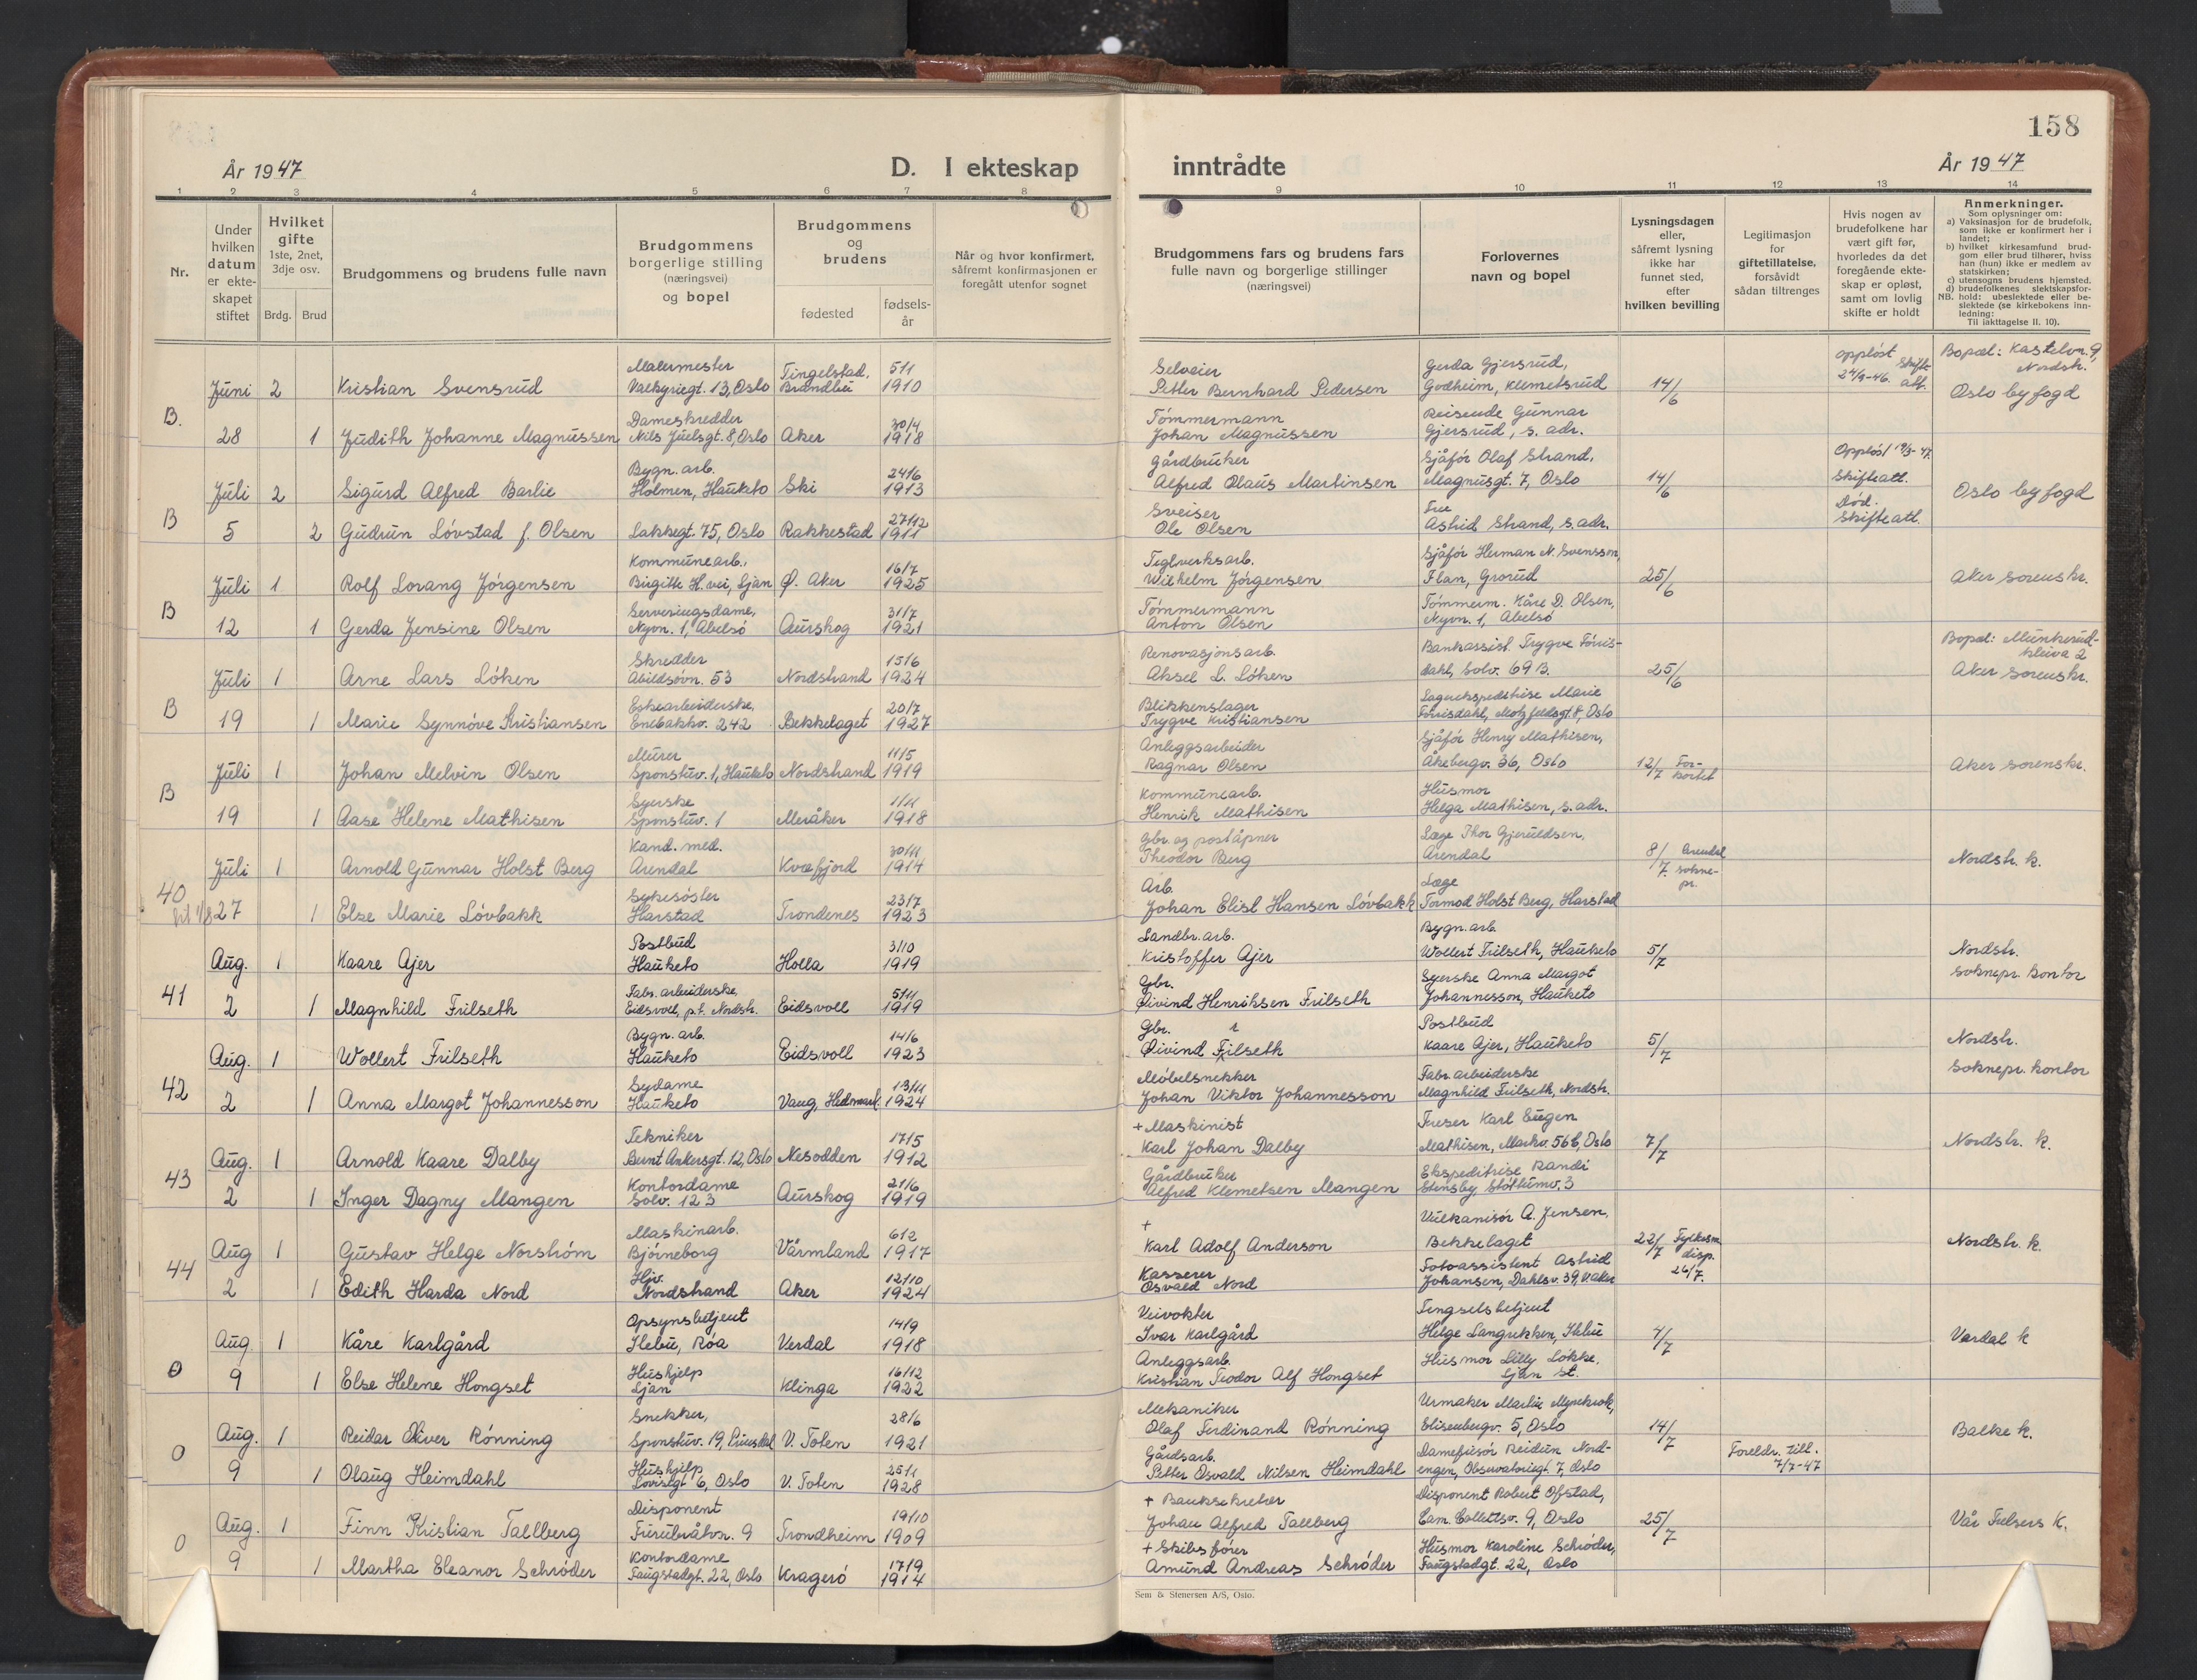 158
År 1947
D. I ekteskap inntrådte
År 1947
1 2 3 4 5 6 7 8 9 10 11 12 13 14
Nr.
Under hvilken datum er ekteskapet stiftet
Hvilket gifte 1ste, 2net, 3dje osv.
Brdg. Brud
Brudgommens og brudens fulle navn
Brudgommens borgerlige stilling (næringsvei) og bopel
Brudgommens og brudens
fødested
fødselsår
Når og hvor konfirmert, såfremt konfirmasjonen er foregått utenfor sognet
Brudgommens fars og brudens fars fulle navn og borgerlige stillinger (næringsvei)
Forlovernes navn og bopel
Lysningsdagen eller, såfremt lysning ikke har funnet sted, efter hvilken bevilling
Legitimasjon for giftetillatelse, forsåvidt sådan tiltrenges
Hvis nogen av brudefolkene har vært gift før, hvorledes da det foregående ekteskap er opløst, samt om lovlig skifte er holdt
Anmerkninger.
Som oplysninger om:
a) Vaksinasjon for de brudefolk, som ikke er konfirmert her i landet;
b) hvilket kirkesamfund brudgom eller brud tilhører, hviss han (hun) ikke er medlem av statskirken;
c) utensogns brudens hjemsted.
d) brudefolkenes slektskapsforhold: ubeslektede eller beslektede (se kirkebokens innledning:
NB.
Til iakttagelse II. 10).
B. Juni 2 Kristian Svensrud Malermester Valkyriegt. 13, Oslo Tingelstad, Brandbu 5/1 1910 Selveier Petter Bernhard Pedersen Gerda Gjersrud, Godheim, Klemetsrud 14/6 oppløst 24/9-46. Skifteatt. Bopæl: Kastelvn. 9, Nordstr. Oslo byfogd
28 1 Judith Johanne Magnussen Dameskredder Nils Juelsgt. 8, Oslo Aker 30/4 1918 Tømmermann Johan Magnussen Reisende Gunnar Gjersrud, s. adr.
B Juli 2 Sigurd Alfred Barlie Bygn. arb. Holmen, Hauketo Ski 24/6 1913 Gårdbruker Alfred Olaus Martinsen Sjåför Olaf Strand, Magnusgt. 7, Oslo 14/6 Oppløst 19/3-47. Skifteatt. Oslo byfogd
5 2 Gudrun Lövstad f. Olsen Lakkegt. 75, Oslo Rakkestad 27/12 1911 Sveiser Ole Olsen Frue Astrid Strand, s. adr. Död. Skifteatt.
B Juli 1 Rolf Lorang Jörgensen Kommunearb., Birgitte H. vei, Ljan Ø. Aker 16/7 1925 Teglverksarb. Wilhelm Jörgensen Sjåför Herman N. Svensson, Flan, Grorud 25/6 Aker sorenskr.
12 1 Gerda Jensine Olsen Serveringsdame, Nyvn. 1, Abelsö Aurskog 31/7 1921 Tömmermann Anton Olsen Tömmerm. Kåre D. Olsen, Nyvn. 1, Abelsö
B Juli 1 Arne Lars Löken Skredder Abildsövn. 53 Nordstrand 15/6 1924 Renovasjonsarb. Aksel L. Löken Bankassist. Trygve Förrisdahl, Solv. 69 B. 25/6 Bopæl: Munkerudkleiva 2 Aker sorenskr.
19 1 Marie Synnöve Kristiansen Eskearbeiderske, Enebakkv. 242 Bekkelaget 20/7 1927 Blikkenslager Trygve Kristiansen Lagerekspeditrise Marie Förrisdahl, Motzfeldsgt. 8, Oslo
B Juli 1 Johan Melvin Olsen Murer Sponstuv. 1, Hauketo Nordstrand 11/5 1919 Anleggsarbeider Ragnar Olsen Sjåför Henry Mathisen, Åkebergv. 36, Oslo 12/7 Forkortet Aker sorenskr.
19 1 Aase Helene Mathisen Syerske Sponstuv. 1 Meråker 1/11 1918 Kommunearb. Henrik Mathisen Husmor Helga Mathisen, s. adr.
40 Juli 1 Arnold Gunnar Holst Berg Kand. med. Arendal Kvæfjord 30/11 1914 Gbr. og poståpner Theodor Berg Læge Thor Gjeruldsen, Arendal 8/7. Arendal soknepr. Nordstr. k.
27 1 Else Marie Lövbakk Sykesöster Harstad Trondenes 23/7 1923 Arb. Johan Elisl Hansen Lövbakk Læge Tormod Holst Berg, Harstad
41 Aug. 1 Kaare Ajer Postbud Hauketo Holla 3/10 1919 Landbr. arb. Kristoffer Ajer Bygn. arb. Wollert Frilseth, Hauketo 5/7 Nordstr. soknepr. kontor
2 1 Magnhild Frilseth Fabr. arbeiderske, Eidsvoll, p.t. Nordstr. Eidsvoll 5/11 1919 Gbr. Øivind Henriksen Frilseth Syerske Anna Margot Johannesson, Hauketo
42 Aug. 1 Wollert Frilseth Bygn. arb. Hauketo Eidsvoll 14/6 1923 Gbr. Øivind Frilseth Postbud Kaare Ajer, Hauketo 5/7 Nordstr. Soknepr. kontor
2 1 Anna Margot Johannesson Sydame Hauketo Vang, Hedmark 13/11 1924 Möbelsnekker Johan Viktor Johannesson Fabr. arbeiderske Magnhild Frilseth, Nordstr.
43 Aug. 1 Arnold Kaare Dalby Tekniker Bernt Ankersgt. 12, Oslo Nesodden 17/5 1912 + Maskinist Karl Johan Dalby Freser Karl Eugen Mathisen, Markv. 56 b, Oslo 7/7 Nordstr. k.
2 1 Inger Dagny Mangen Kontordame Solv. 123 Aurskog 21/6 1919 Gårdbruker Alfred Klemetsen Mangen Ekspeditrise Randi Stensby, Stöttumv. 3
44 Aug 1 Gustav Helge Norström Maskinarb. Björneborg Värmland 6/2 1917 + Karl Adolf Anderson Vulkanisör A. Jensen, Bekkelaget 22/7 Fylkesm. disp. 26/7. Nordstr. k.
2 1 Edith Harda Nord Hjv. Nordstrand Aker 12/10 1924 Kasserer Osvald Nord Fotoassistent Astrid Johansen, Dahlsv. 39, V. Aker
O Aug. 1 Kåre Karlgård Opsynsbetjent Ilebu, Röa Verdal 14/9 1918 Veivokter Ivar Karlgård Fengselsbetjent Helge Langrekken, Ilebu 4/7 Vardal k
9 1 Else Helene Hongset Hushjelp Ljan Klinga 16/12 1922 Anleggsarb. Kristian Teodor Alf Hongset Husmor Lilly Lökke. Ljan st.
O Aug. 1 Reidar Oliver Rönning Snekker, Sponstuv. 19, V. Toten 28/6 1921 Mekaniker Olaf Ferdinand Rönning Urmaker Martin Elisenbergv. 5, Oslo 14/7 Balke k.
9 1 Olaug Heimdahl Hushjelp Lovisegt 6, Oslo V. Toten 25/1 1928 Gårdsarb. Petter Osvald Nilsen Heimdahl Damefrisör Reidun Nordengen, Observatoriegt. 7, Oslo Foreldr. till. 7/7-47
O Aug. 1 Finn Kristian Tallberg Disponent Furubråtvn. 9 Trondheim 19/10 1909 + Banksekretær Johan Alfred Tallberg Disponent Robert Ofstad, Cam. Collettsv. 9, Oslo 25/7 Vår Frelsers K.
9 1 Martha Eleanor Schröder Kontordame Faugstadgt. 22, Oslo Kragerö 17/9 1914 + Skibsförer Amund Andreas Schröder Husmor Karoline Schröder, Faugstadgt. 22, Oslo
Sem & Stenersen A/S, Oslo.